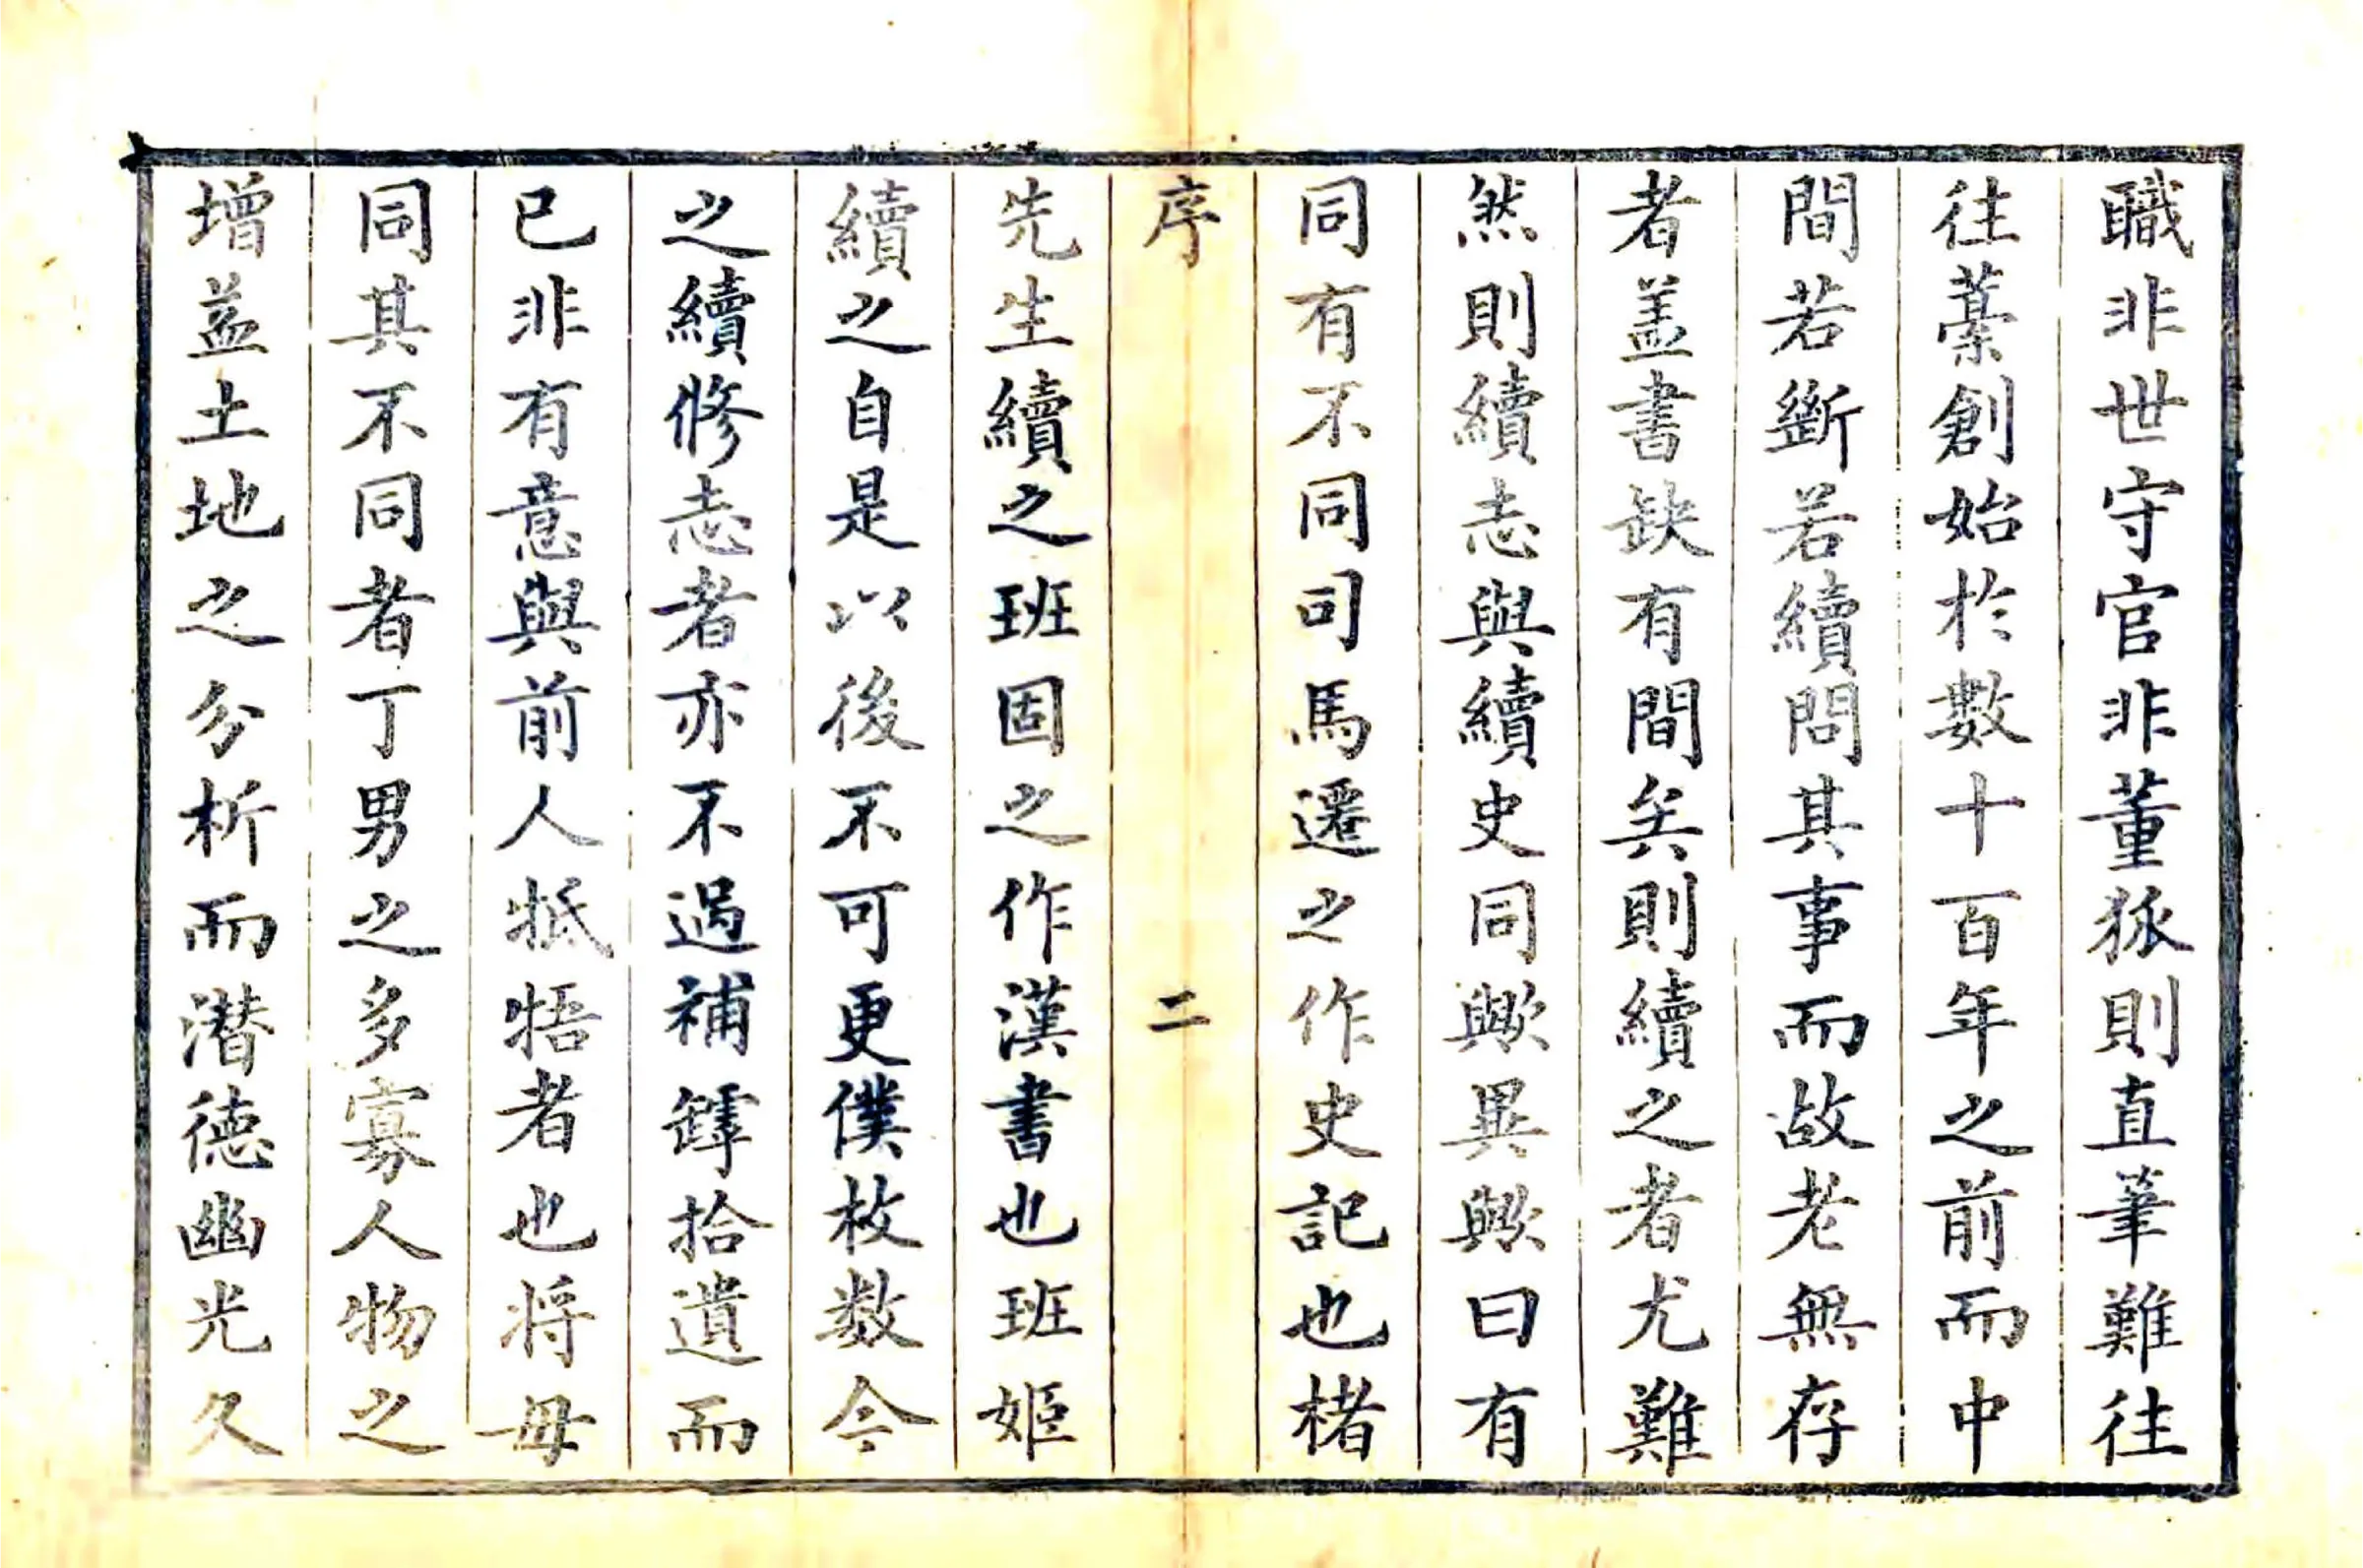 職非世守官非董狐則直筆難往
往藁創始於數十百年之前而中
間若斷若續問其事而故老無存
者盖書缺有間矣則續之者尤難
然則續志與續史同歟異歟曰有
同有不同司馬遷之作史記也楮
序 二
先生續之班固之作漢書也班姬
續之自是以後不可更僕枚数今
之續修志者亦不過補罅拾遺而
已非有意與前人牴牾者也将毋
同其不同者丁男之多寡人物之
增益土地之分析而潜德幽光久